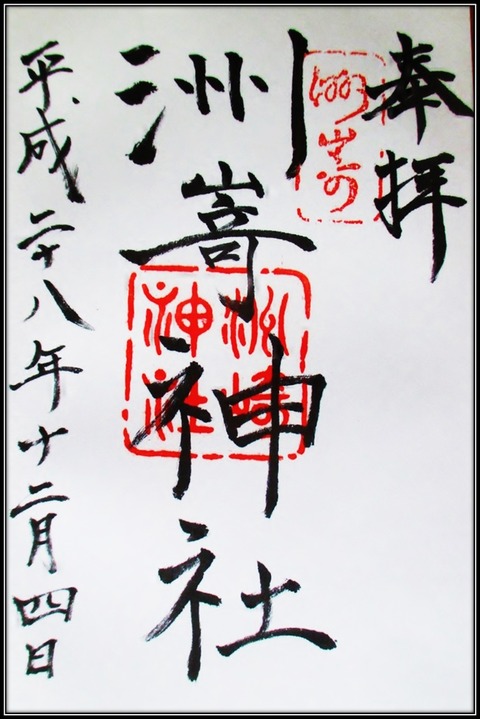 奉拝
洲嵜神社
平成二十八年十二月四日
洲嵜
神社